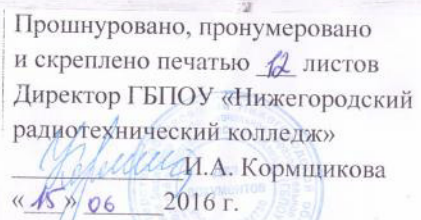 Прошнуровано, пронумеровано
и скреплено печатью 12 листов
Директор ГБПОУ «Нижегородский
радиотехнический колледж»
И.А. Кормщикова
«15» 06 2016 г.